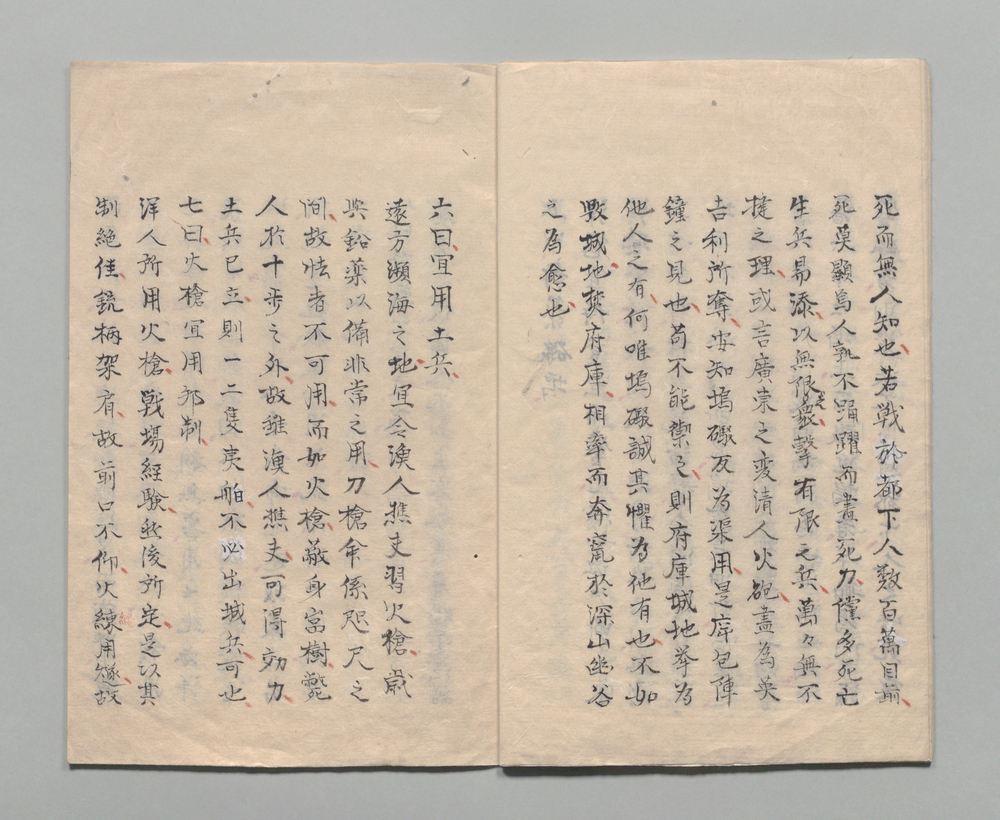 死而無人知也若戦於都下人数百萬目前
死莫顕焉人孰不踊躍而盡死力儻多死亡
生兵易添以無限之衆撃有限之兵萬々無不
捷之理或言廣東之変清人火砲盡為英
吉利所奪安知塢礮反為渠用是庠包陣
鐘之見也苟不能禦之則府庫城地挙為
他人之有何唯塢礮誠其懼為他有也不如
毀城地焚府庫相率而奔竄於深山幽谷
之為愈也
六曰宜用土兵
遠方瀕海之地宜令漁人樵夫習火槍歳
與鉛薬以備非常之用刀槍余係咫尺之
間故怯者不可用而如火槍蔽身富樹斃
人於十歩之外故雖漁人樵夫可得効力
土兵已立則一二隻夷舶不必出城兵可也
七曰火槍宜用邦制
洋人所用火槍戦場経験然後所定是以其
制絶佳銃柄架肩故前口不仰火練用燧故